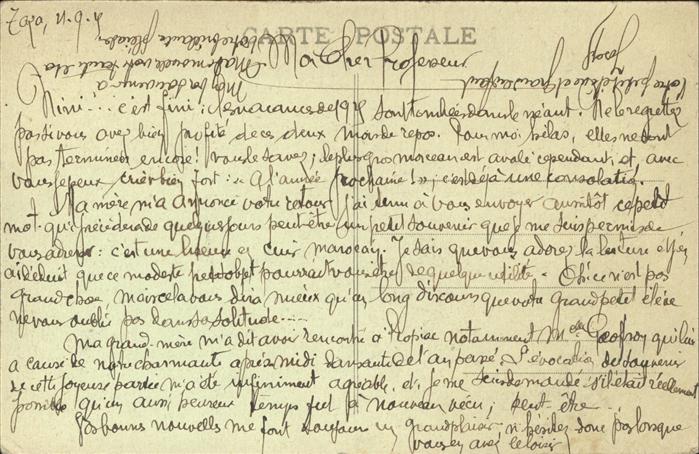 CARTE POSTALE
Mon Cher Professeur
Nini... c'est fini: les vacances de 1925 sont tombées dans le néant. Ne le regrettez
pas si vous avez bien profité de ces deux mois de repos. Pour moi, hélas, elles ne sont
pas terminées encore! vous le savez; le plus gros morceau est avalé cependant et avec
vous je peux crier bien fort: « A l'année prochaine! »; c'est déjà une consolation.
Ma mère m'a annoncé votre retour. J'ai tenu à vous envoyer aussitôt ce petit
mot qui précédera de quelques jours peut-être un petit souvenir que je me suis permis de
vous adresser: c'est une liseuse en cuir marocain. Je sais que vous adorez la lecture et j'en
ai déduit que ce modeste petit objet pourrait vous être de quelque utilité. Oh! ce n'est pas
grand chose, mais cela vous dira mieux qu'un long discours que votre grand petit élève
ne vous oublie pas dans sa solitude...
Ma grand-mère m'a dit avoir rencontré à notamment Mlle Geoffroy qui lui
a causé de notre charmante après-midi dansante de l'an passé. L'évocation de souvenir
de cette joyeuse partie m'a été infiniment agréable, et je me suis demandé s'il était réellement
possible qu'un aussi heureux temps fut à nouveau vécu; peut-être...
Vos bonnes nouvelles me font toujours un grand plaisir. n'hésitez donc pas lorsque
vous en avez le loisir